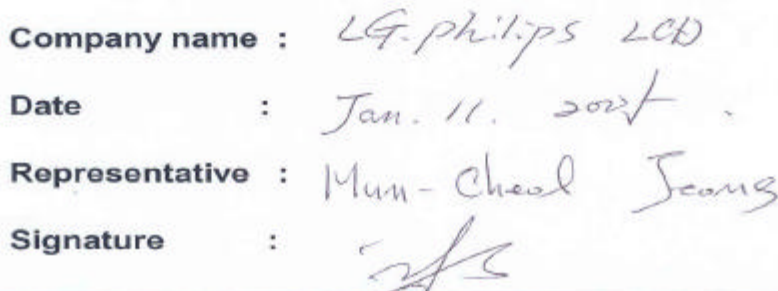 Company name : LG.philips LCD
Date : Jan. 11.
Representative : Mun-Cheol Jeong
Signature :